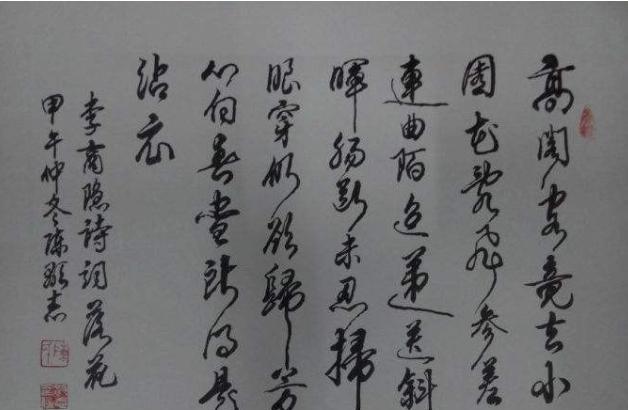 高閣客竟去小
園花亂飛參差
連曲陌迢递送斜
暉腸断未忍掃
眼穿仍欲歸芳
心向春盡所得是
沾衣
李商隱詩詞落花
甲午仲冬陳志